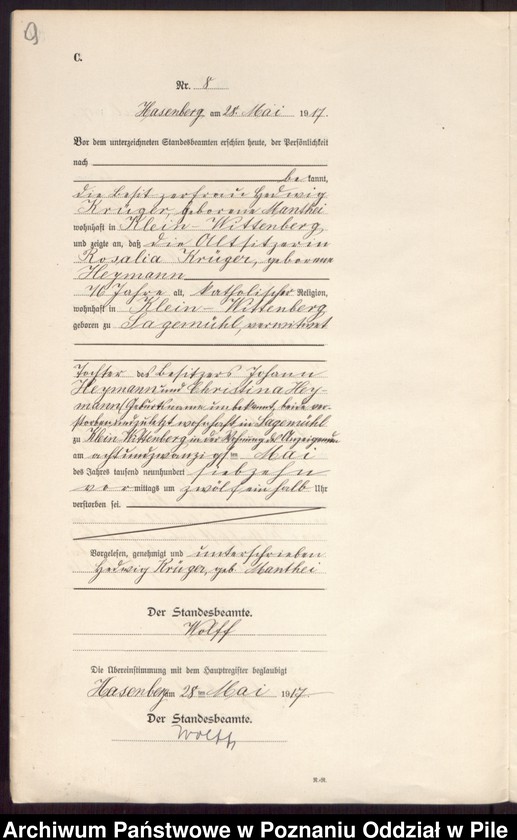 9
C.
Nr. 8
Hasenberg am 28. Mai 1917.
Vor dem unterzeichneten Standesbeamten erschien heute, der Persönlichkeit
nach
be kannt,
die Besitzerfrau Hedwig
Krüger, geborene Manthei
wohnhaft in Klein-Wittenberg,
und zeigte an, daß die Altsitzerin
Rosalia Krüger, geborene
Heymann
76 Jahre alt, katholischer Religion,
wohnhaft in Klein-Wittenberg
geboren zu Sagemühl, verwitwet
Tochter des Besitzers Johann
Heymann und Christina Hey-
mann, Geburtsname unbekannt, beide ver-
storben und zuletzt wohnhaft in Sagemühl
zu Klein Wittenberg in der Wohnung der Anzeigenden
am achtundzwanzigsten Mai
des Jahres tausend neunhundert siebzehn
vor mittags um zwölfeinhalb Uhr
verstorben sei.
Vorgelesen, genehmigt und unterschrieben
Hedwig Krüger, geb. Manthei
Der Standesbeamte.
Wolff
Die Übereinstimmung mit dem Hauptregister beglaubigt
Hasenberg am 28 ten Mai 1917
Der Standesbeamte.
Wolff
R.-R.
Archiwum Państwowe w Poznaniu Oddział w Pile